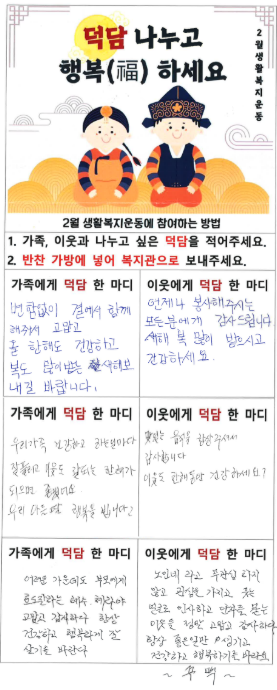 덕담 나누고
행복(福) 하세요
2월생활복지운동
2월 생활복지운동에 참여하는 방법
1. 가족, 이웃과 나누고 싶은 덕담을 적어주세요.
2. 반찬 가방에 넣어 복지관으로 보내주세요.
가족에게 덕담 한 마디
변함없이 곁에서 함께
해주셔 고맙고
올 한해도 건강하고
복도 많이받는 새해보
내길 바랍니다.
이웃에게 덕담 한 마디
언제나 봉사해주시는
모든분에게 감사드립니다
새해 복 많이 받으시고
건강하세요.
가족에게 덕담 한 마디
우리가족 건강하고 하는일마다
잘풀리고 웃을 한해가
되으면
우리 행복을 빕니다
이웃에게 덕담 한 마디
음식을
감사합니다
이웃도 한해동안 건강하세요?
가족에게 덕담 한 마디
어려운 가운데도 부모에게
효도한다는
고맙고 감사하다 항상
건강하고 행복하게 잘
살기를 바란다
이웃에게 덕담 한 마디
노인네 라고 무관심 하지
않고 관심을 가지고 웃는
얼굴로 인사하고 안부를 묻는
이웃을 정말 고맙고 감사하다
항상 좋은일만 생기고
건강하고 행복하기를 바라요.